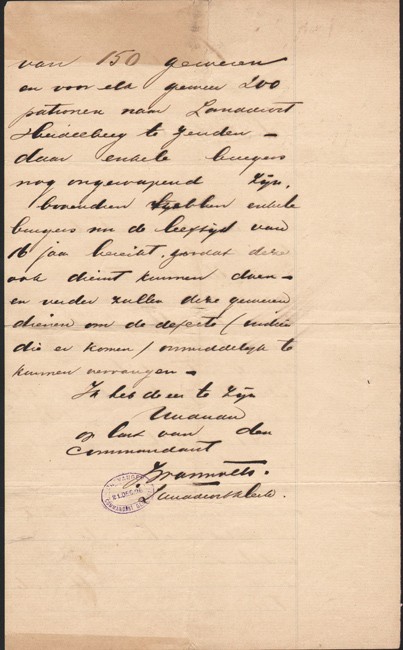 van 150 geweren
en voor elk geweer 200
patronen naar Landdrost
Heidelberg te zenden –
daar enkele burgers
nog ongewapend zijn.
bovendien hebben enkele
burgers nu de leeftijd van
16 jaar bereikt, zoodat deze
ook dienst kunnen doen –
en verder zullen deze geweren
dienen om de defecte (indien
die er komen) onmiddelijk te
kunnen vervangen –
Ik heb de eer te zijn
op last van den
Commandant
Landdrostklerk.